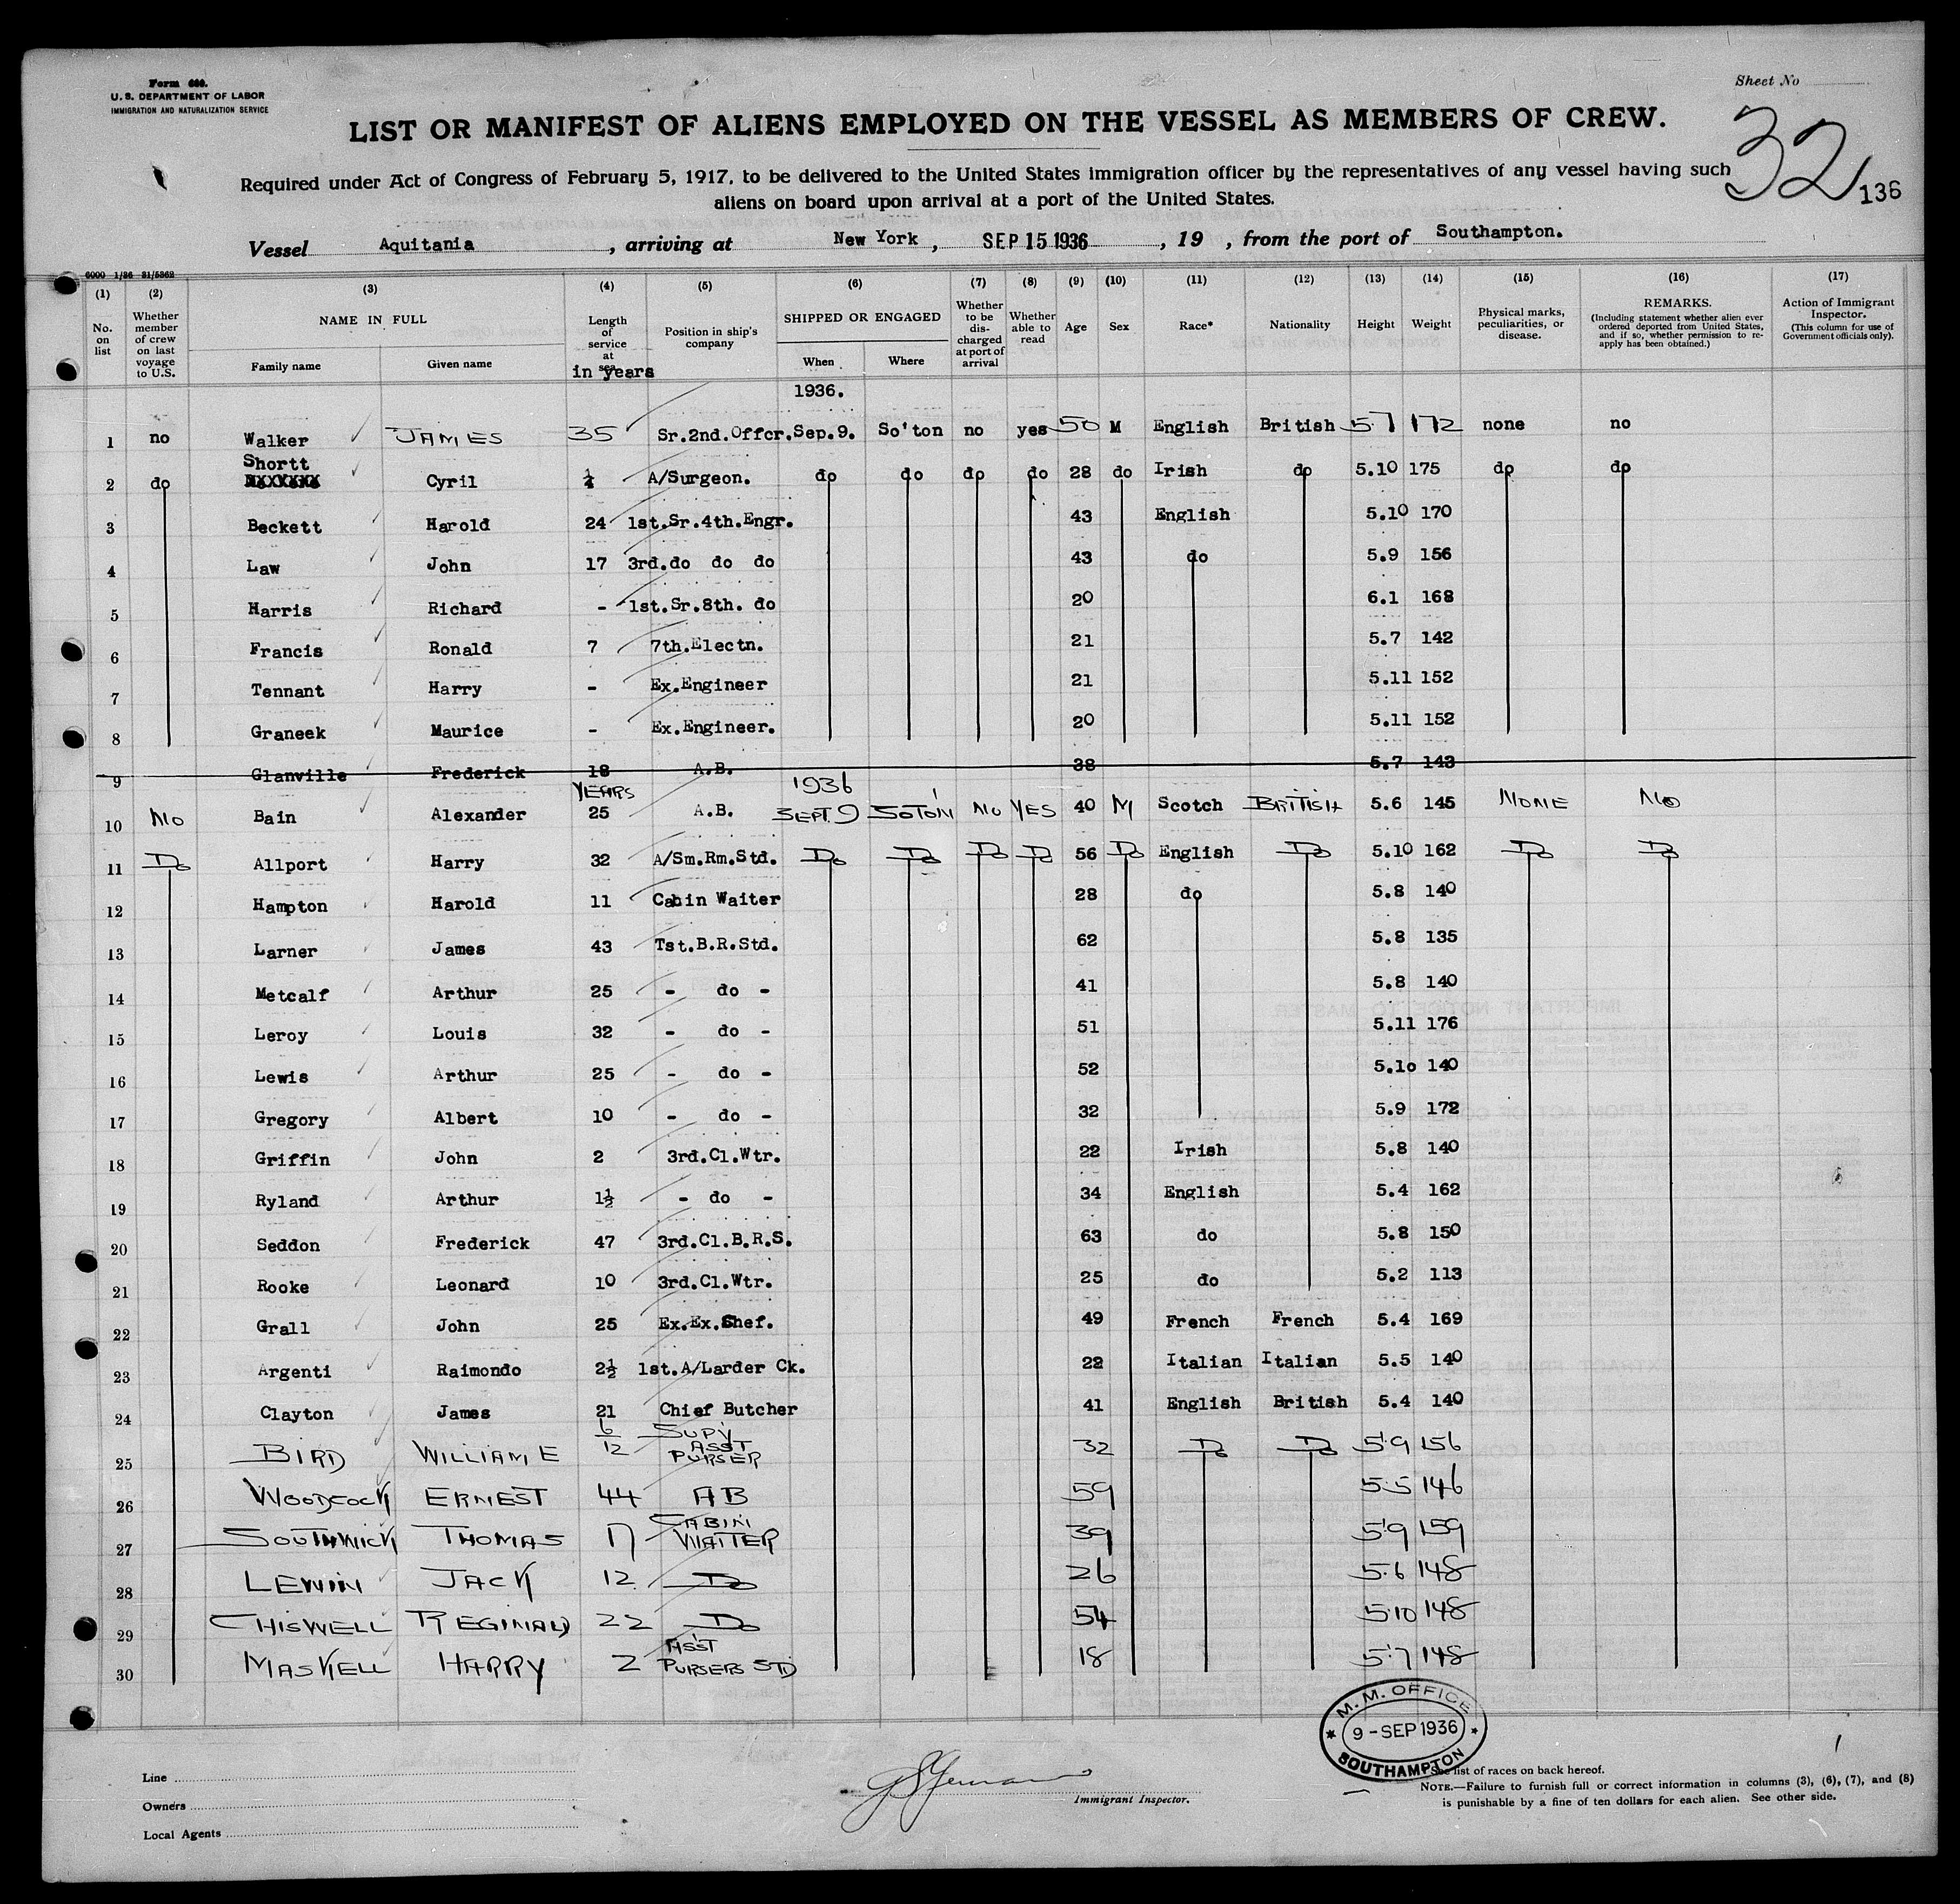 Form 680.
U. S. DEPARTMENT OF LABOR
IMMIGRATION AND NATURALIZATION SERVICE
Sheet No
LIST OR MANIFEST OF ALIENS EMPLOYED ON THE VESSEL AS MEMBERS OF CREW.
32
136
Required under Act of Congress of February 5, 1917, to be delivered to the United States immigration officer by the representatives of any vessel having such
aliens on board upon arrival at a port of the United States.
Vessel Aquitania , arriving at New York , SEP 15 1936 , 19 , from the port of Southampton.
6000 1/36 31/5362
(1) (2) (3) (4) (5) (6) (7) (8) (9) (10) (11) (12) (13) (14) (15) (16) (17)
No. on list
Whether member of crew on last voyage to U.S.
NAME IN FULL
Family name Given name
Length of service at sea in years
Position in ship's company
SHIPPED OR ENGAGED
When Where
Whether to be discharged at port of arrival
Whether able to read
Age
Sex
Race*
Nationality
Height
Weight
Physical marks, peculiarities, or disease.
REMARKS. (Including statement whether alien ever ordered deported from United States, and if so, whether permission to reapply has been obtained.)
Action of Immigrant Inspector. (This column for use of Government officials only).
1936.
1 no Walker JAMES 35 Sr.2nd.Offcr. Sep.9. So'ton no yes 50 M English British 5.7 172 none no
Shortt
2 do Cyril ¼ A/Surgeon. do do do do 28 do Irish do 5.10 175 do do
3 Beckett Harold 24 1st.Sr.4th.Engr. 43 English 5.10 170
4 Law John 17 3rd.do do do 43 do 5.9 156
5 Harris Richard - 1st.Sr.8th. do 20 6.1 168
6 Francis Ronald 7 7th.Electn. 21 5.7 142
7 Tennant Harry - Ex.Engineer 21 5.11 152
8 Graneek Maurice - Ex.Engineer. 20 5.11 152
9 Glanville Frederick 18 A.B. 38 5.7 143
YEARS 1936
10 NO Bain Alexander 25 A.B. SEPT.9 SOTON NO YES 40 M Scotch BRITISH 5.6 145 NONE NO
11 DO Allport Harry 32 A/Sm.Rm.Std. DO DO DO DO 56 DO English DO 5.10 162 DO DO
12 Hampton Harold 11 Cabin Waiter 28 do 5.8 140
13 Larner James 43 Tst.B.R.Std. 62 5.8 135
14 Metcalf Arthur 25 - do - 41 5.8 140
15 Leroy Louis 32 - do - 51 5.11 176
16 Lewis Arthur 25 - do - 52 5.10 140
17 Gregory Albert 10 - do - 32 5.9 172
18 Griffin John 2 3rd.Cl.Wtr. 22 Irish 5.8 140
19 Ryland Arthur 1½ - do - 34 English 5.4 162
20 Seddon Frederick 47 3rd.Cl.B.R.S. 63 do 5.8 150
21 Rooke Leonard 10 3rd.Cl.Wtr. 25 do 5.2 113
22 Grall John 25 Ex.Ex.Shef. 49 French French 5.4 169
23 Argenti Raimondo 2½ 1st.A/Larder Ck. 22 Italian Italian 5.5 140
24 Clayton James 21 Chief Butcher 41 English British 5.4 140
25 BIRD WILLIAM E 6/12 SUPY ASST PURSER 32 DO DO 5.9 156
26 WOODCOCK ERNEST 44 AB 59 5.5 146
27 SOUTHWICK THOMAS 17 CABIN WAITER 39 5.9 159
28 LEWIN JACK 12 DO 26 5.6 148
29 CHISWELL REGINALD 22 DO 54 5.10 148
30 MASKELL HARRY 2 ASST PURSERS STD 18 5.7 148
M. M. OFFICE
9 - SEP 1936
SOUTHAMPTON
Line
Owners
Local Agents
Immigrant Inspector.
See list of races on back hereof.
NOTE.—Failure to furnish full or correct information in columns (3), (6), (7), and (8)
is punishable by a fine of ten dollars for each alien. See other side.